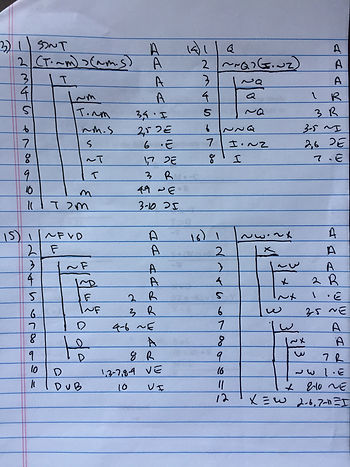 13) 1 S⊃~T A
2 (T·~M)⊃(~M·S) A
3 T A
4 ~M A
5 T·~M 3,4 ·I
6 ~M·S 2,5 ⊃E
7 S 6 ·E
8 ~T 1,7 ⊃E
9 T 3 R
10 M 4-9 ~E
11 T⊃M 3-10 ⊃I
14) 1 Q A
2 ~~Q⊃(I·~Z) A
3 ~Q A
4 Q 1 R
5 ~Q 3 R
6 ~~Q 3-5 ~I
7 I·~Z 2,6 ⊃E
8 I 7 ·E
15) 1 ~F∨D A
2 F A
3 ~F A
4 ~D A
5 F 2 R
6 ~F 3 R
7 D 4-6 ~E
8 D A
9 D 8 R
10 D 1,3-7,8-9 ∨E
11 D∨B 10 ∨I
16) 1 ~W·~X A
2 X A
3 ~W A
4 X 2 R
5 ~X 1 ·E
6 W 3-5 ~E
7 W A
8 ~X A
9 W 7 R
10 ~W 1 ·E
11 X 8-10 ~E
12 X≡W 2-6,7-11 ≡I